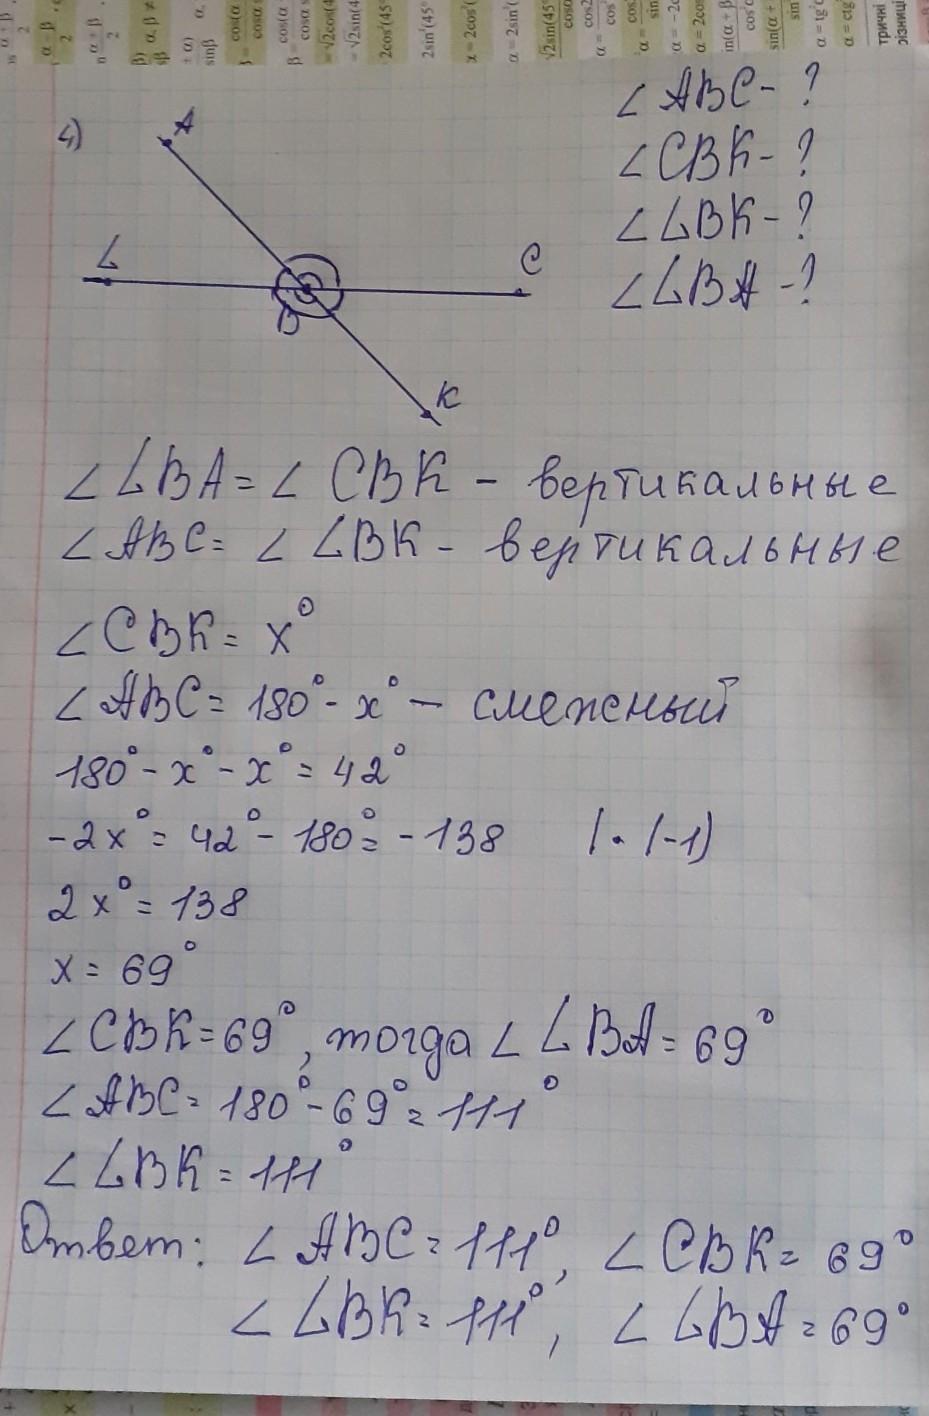 ∠ABC - ?
∠CBK - ?
∠LBK - ?
∠LBA - ?
4)
A
L
C
B
K
∠LBA = ∠CBK - вертикальные
∠ABC = ∠LBK - вертикальные
∠CBK = x°
∠ABC = 180° - x° - смежный
180° - x° - x° = 42°
-2x° = 42° - 180° = -138 | · (-1)
2x° = 138
x = 69°
∠CBK = 69°, тогда ∠LBA = 69°
∠ABC = 180° - 69° = 111°
∠LBK = 111°
Ответ: ∠ABC = 111°, ∠CBK = 69°
∠LBK = 111°, ∠LBA = 69°